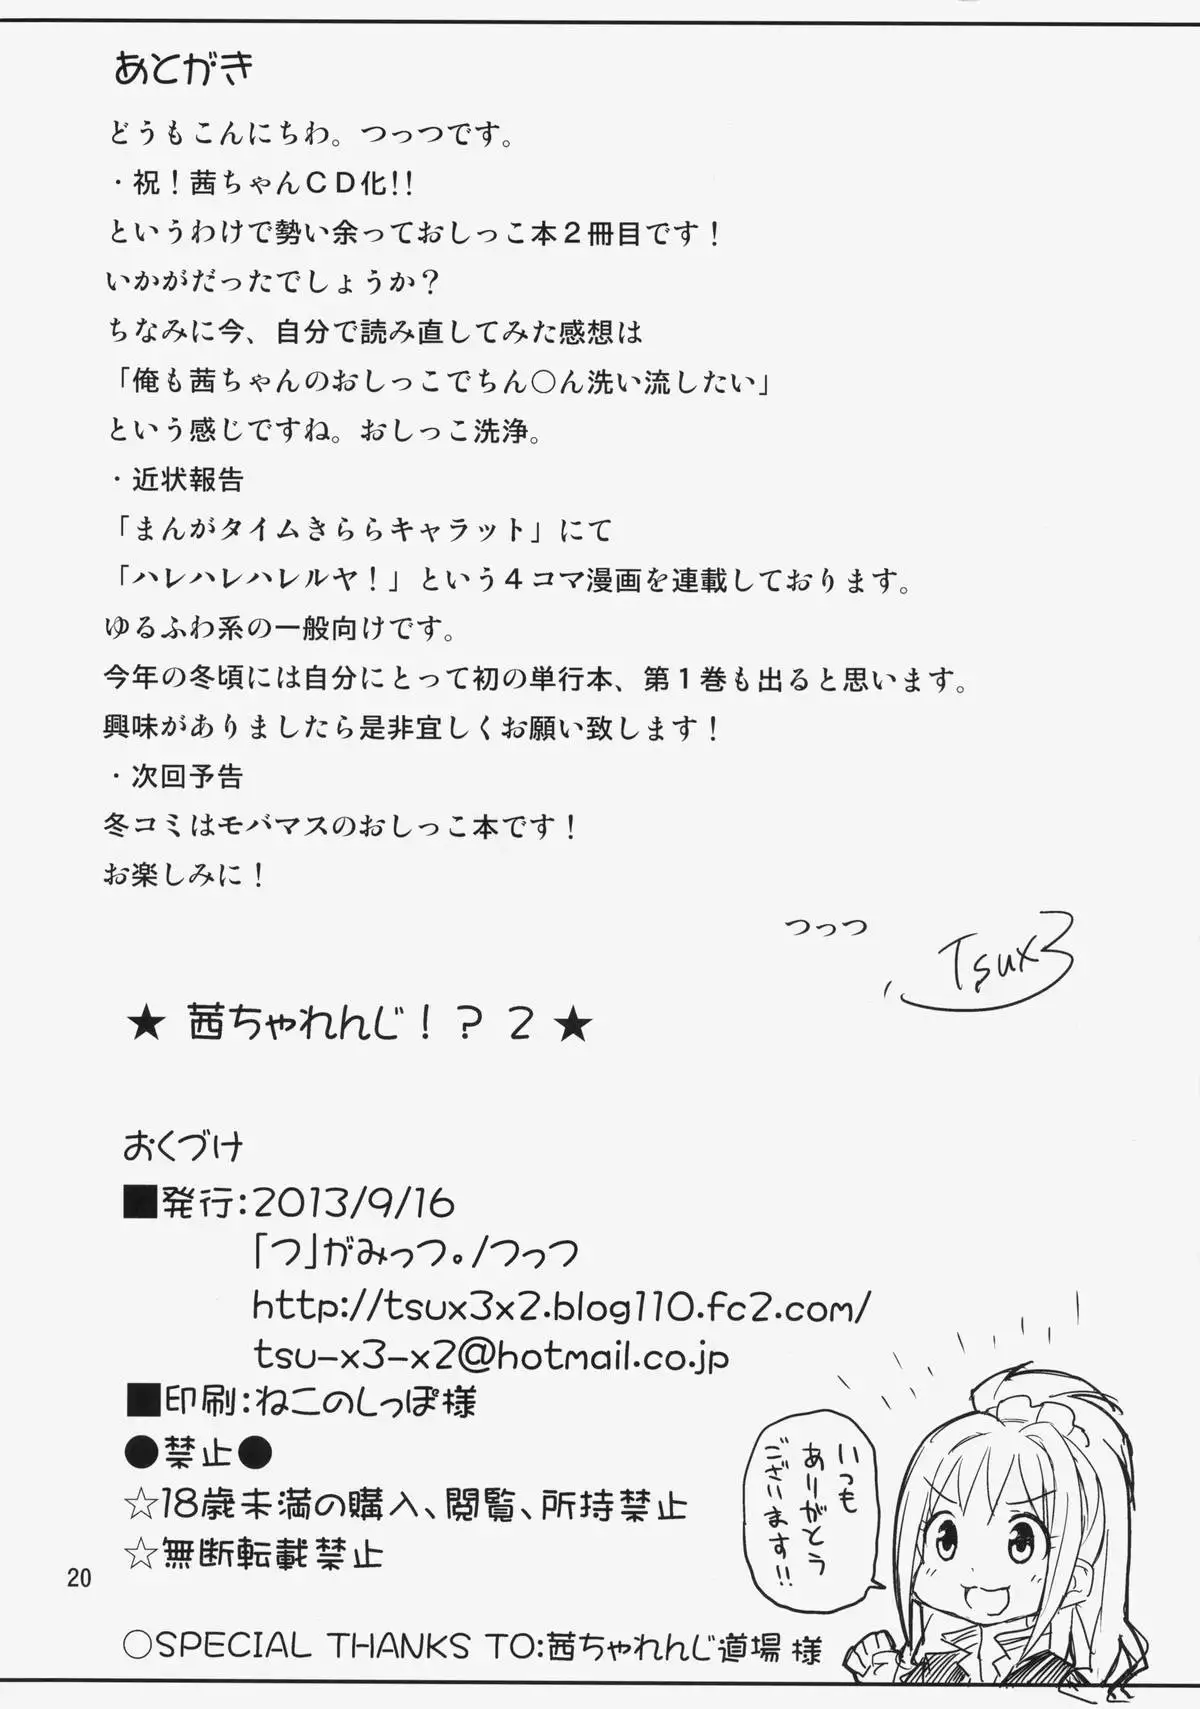 あとがき
どうもこんにちわ。つっつです。
・祝！茜ちゃんＣＤ化!!
というわけで勢い余っておしっこ本２冊目です！
いかがだったでしょうか？
ちなみに今、自分で読み直してみた感想は
「俺も茜ちゃんのおしっこでちん○ん洗い流したい」
という感じですね。おしっこ洗浄。
・近状報告
「まんがタイムきららキャラット」にて
「ハレハレハレルヤ！」という４コマ漫画を連載しております。
ゆるふわ系の一般向けです。
今年の冬頃には自分にとって初の単行本、第１巻も出ると思います。
興味がありましたら是非宜しくお願い致します！
・次回予告
冬コミはモバマスのおしっこ本です！
お楽しみに！
つっつ
Tsux3
★ 茜ちゃれんじ！？２ ★
おくづけ
■発行：2013/9/16
「つ」がみっつ。/つっつ
http://tsux3x2.blog110.fc2.com/
tsu-x3-x2@hotmail.co.jp
■印刷：ねこのしっぽ様
●禁止●
☆18歳未満の購入、閲覧、所持禁止
☆無断転載禁止
○SPECIAL THANKS TO：茜ちゃれんじ道場 様
いつも
ありがとう
ございます!!
20